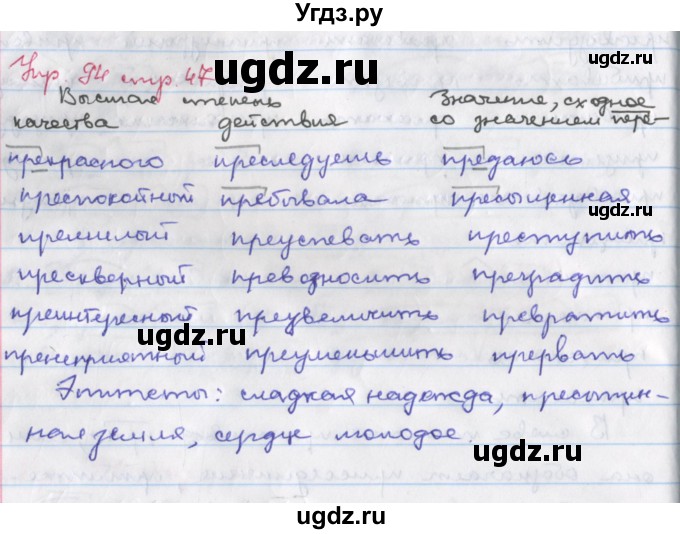 Угдз.ру
Упр. 94 стр. 47
ugdz.ru
Высшая степень Значение, сходное
ugdz.ru
качества действия со значением пере-
прекрасного преследуешь предаюсь
ugdz.ru
преспокойный пребывала пресыщенная
ugdz.ru
премилый преуспевать преступить
прескверный превозносить преградить
преинтересный преувеличить превратить
ugdz.ru
пренеприятный преуменьшить прервать
Эпитеты: сладкая надежда, пресыщен-
ная земля, сердце молодое
ugdz.ru
ugdz.ru